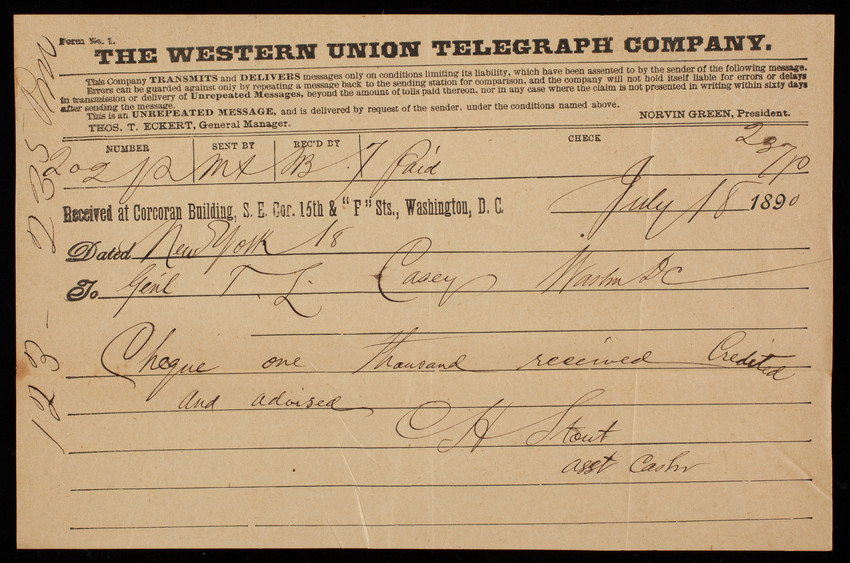 Form No. 1.
THE WESTERN UNION TELEGRAPH COMPANY.
This Company TRANSMITS and DELIVERS messages only on conditions limiting its liability, which have been assented to by the sender of the following message.
Errors can be guarded against only by repeating a message back to the sending station for comparison, and the company will not hold itself liable for errors or delays
in transmission or delivery of Unrepeated Messages, beyond the amount of tolls paid thereon, nor in any case where the claim is not presented in writing within sixty days
after sending the message.
This is an UNREPEATED MESSAGE, and is delivered by request of the sender, under the conditions named above.
THOS. T. ECKERT, General Manager. NORVIN GREEN, President.
NUMBER SENT BY REC'D BY CHECK
202 7 Paid
Received at Corcoran Building, S. E. Cor. 15th & "F" Sts., Washington, D. C. July 18 1890
Dated New York 18
To Genl T. L. Casey Washn DC
Cheque one thousand received Credited
and advised
C H Stout
asst Cashr
123 - 235 Pm